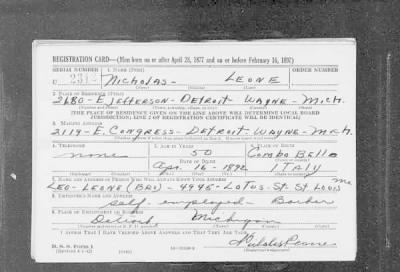 REGISTRATION CARD—(Men born on or after April 28, 1877 and on or before February 16, 1897)
SERIAL NUMBER 1. NAME (Print) ORDER NUMBER
U 231 NICHOLAS - LEONE
2. PLACE OF RESIDENCE (Print)
2680 - E. JEFFERSON - DETROIT - WAYNE - MICH.
[THE PLACE OF RESIDENCE GIVEN ON THE LINE ABOVE WILL DETERMINE LOCAL BOARD
JURISDICTION; LINE 2 OF REGISTRATION CERTIFICATE WILL BE IDENTICAL]
3. MAILING ADDRESS
2119 - E. CONGRESS - DETROIT - WAYNE - MICH.
4. TELEPHONE 5. AGE IN YEARS 6. PLACE OF BIRTH
none 50 COMBO BELLO
DATE OF BIRTH
Apr. 16 - 1892 ITALY
7. NAME AND ADDRESS OF PERSON WHO WILL ALWAYS KNOW YOUR ADDRESS
LEO - LEONE (BRO) - 4945 - LOTUS - ST - ST LOUIS Mo
8. EMPLOYER'S NAME AND ADDRESS
self employed - Barber
9. PLACE OF EMPLOYMENT OR BUSINESS
Detroit Michigan
I AFFIRM THAT I HAVE VERIFIED ABOVE ANSWERS AND THAT THEY ARE TRUE.
D. S. S. Form 1
Nicholas Leone